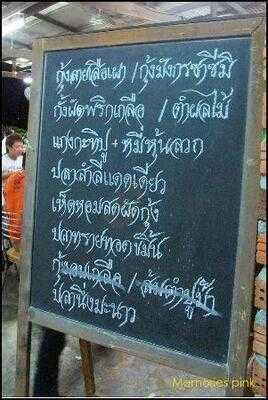 กุ้งลายเสือเผา / กุ้งมังกรซาซิมิ
กั้งผัดพริกเกลือ / ตำผลไม้
แกงกะทิปู + หมี่หุ้นลวก
ปลาสำลีแดดเดียว
เห็ดหอมสดผัดกุ้ง
ปลาทรายทอดขมิ้น
กุ้งอบเกลือ / ส้มตำปูม้า
ปลานึ่งมะนาว
Memories pink